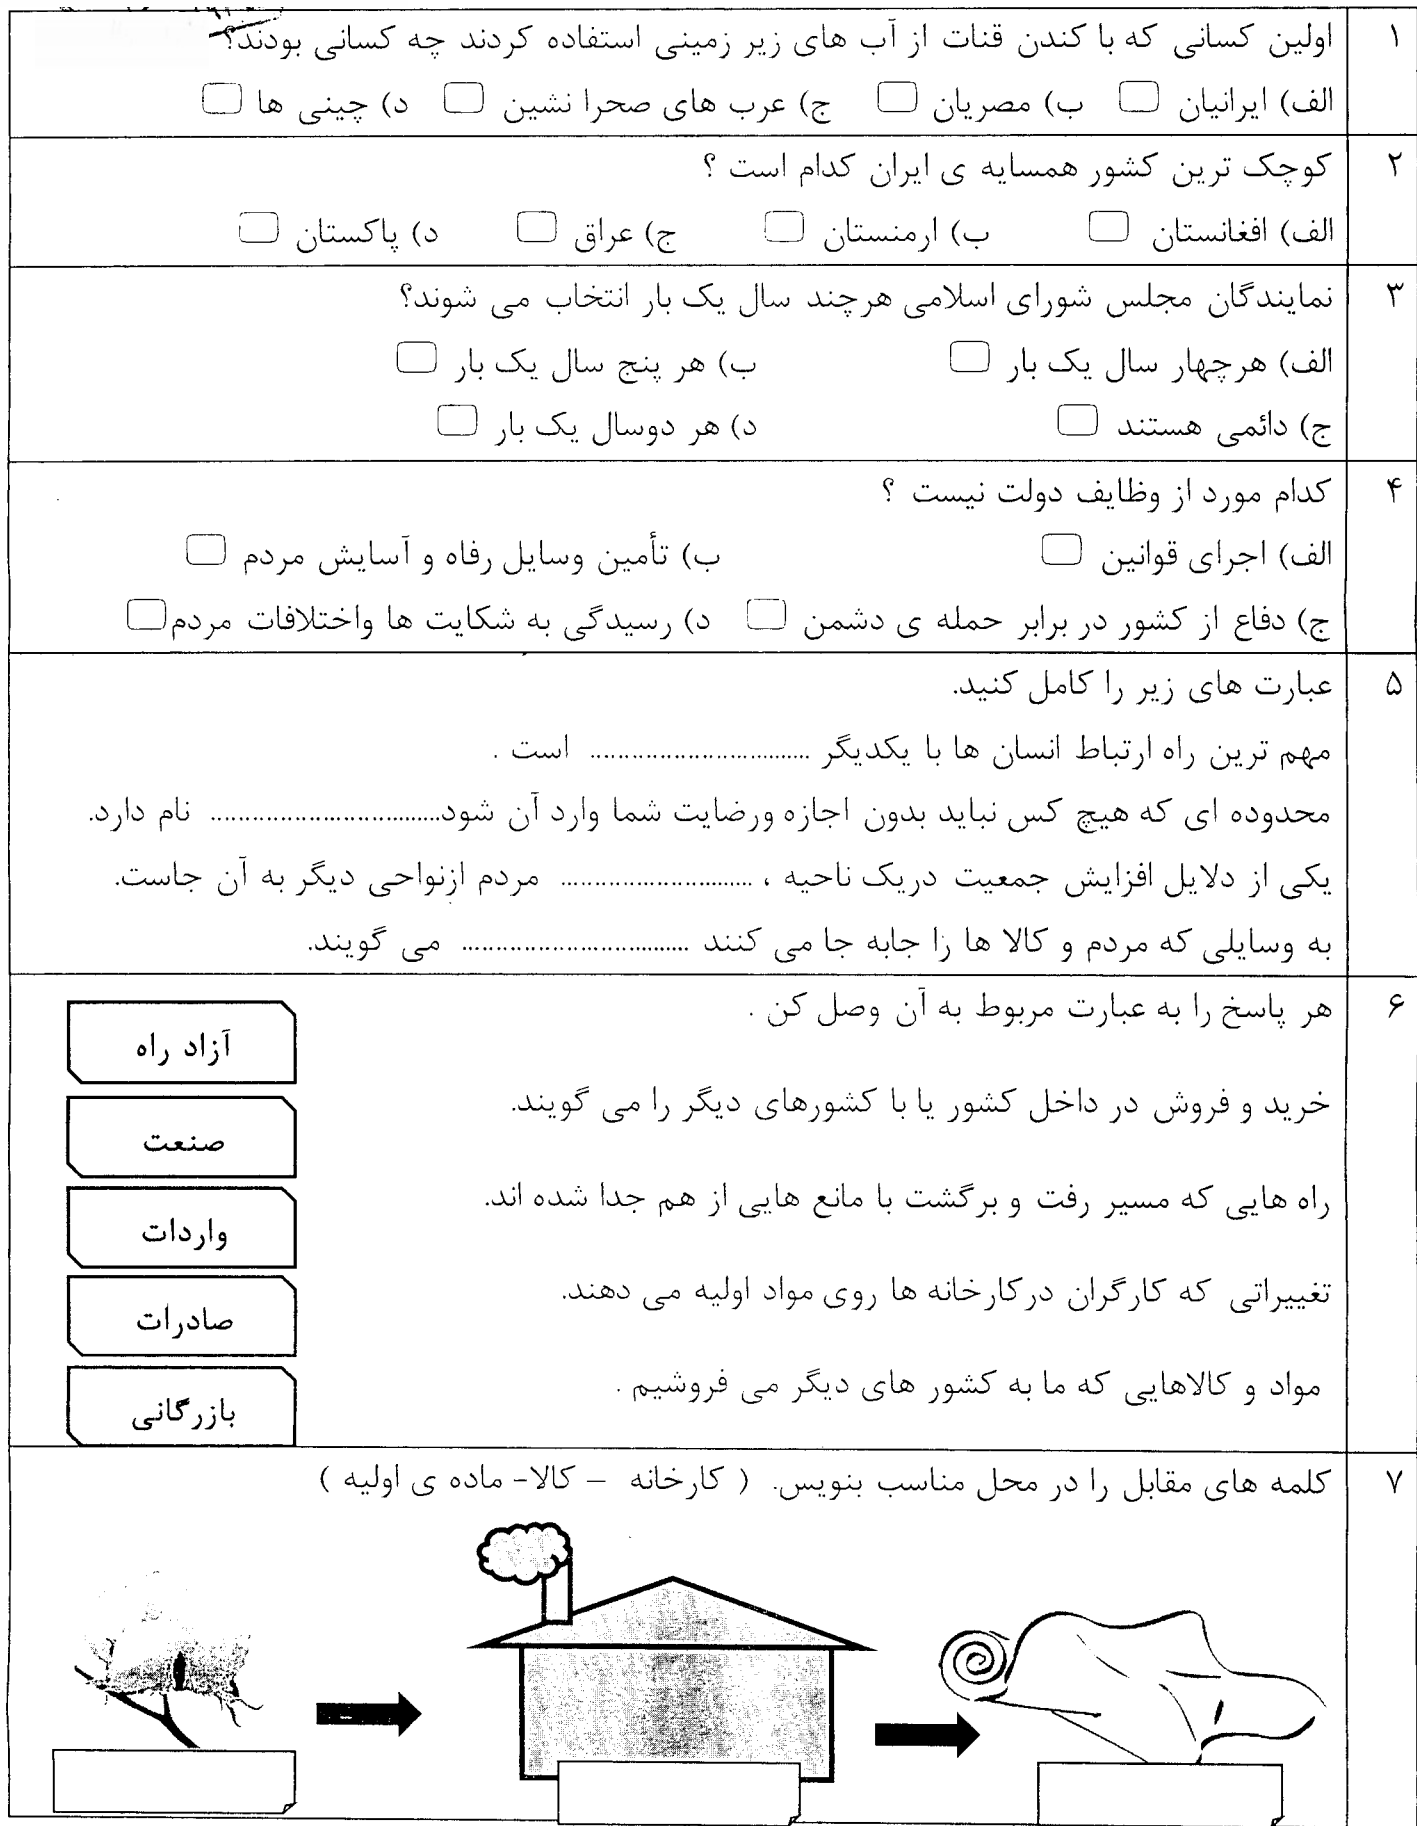 ۱ اولین کسانی که با کندن قنات از آب های زیر زمینی استفاده کردند چه کسانی بودند؟
الف) ایرانیان ب) مصریان ج) عرب های صحرا نشین د) چینی ها
۲ کوچک ترین کشور همسایه ی ایران کدام است ؟
الف) افغانستان ب) ارمنستان ج) عراق د) پاکستان
۳ نمایندگان مجلس شورای اسلامی هرچند سال یک بار انتخاب می شوند؟
الف) هرچهار سال یک بار ب) هر پنج سال یک بار
ج) دائمی هستند د) هر دوسال یک بار
۴ کدام مورد از وظایف دولت نیست ؟
الف) اجرای قوانین ب) تأمین وسایل رفاه و آسایش مردم
ج) دفاع از کشور در برابر حمله ی دشمن د) رسیدگی به شکایت ها واختلافات مردم
۵ عبارت های زیر را کامل کنید.
مهم ترین راه ارتباط انسان ها با یکدیگر ................................ است .
محدوده ای که هیچ کس نباید بدون اجازه ورضایت شما وارد آن شود................................. نام دارد.
یکی از دلایل افزایش جمعیت دریک ناحیه ، ............................ مردم ازنواحی دیگر به آن جاست.
به وسایلی که مردم و کالا ها را جابه جا می کنند ................................. می گویند.
۶ هر پاسخ را به عبارت مربوط به آن وصل کن .
آزاد راه
خرید و فروش در داخل کشور یا با کشورهای دیگر را می گویند.
صنعت
راه هایی که مسیر رفت و برگشت با مانع هایی از هم جدا شده اند.
واردات
تغییراتی که کارگران درکارخانه ها روی مواد اولیه می دهند.
صادرات
مواد و کالاهایی که ما به کشور های دیگر می فروشیم .
بازرگانی
۷ کلمه های مقابل را در محل مناسب بنویس. ( کارخانه – کالا- ماده ی اولیه )